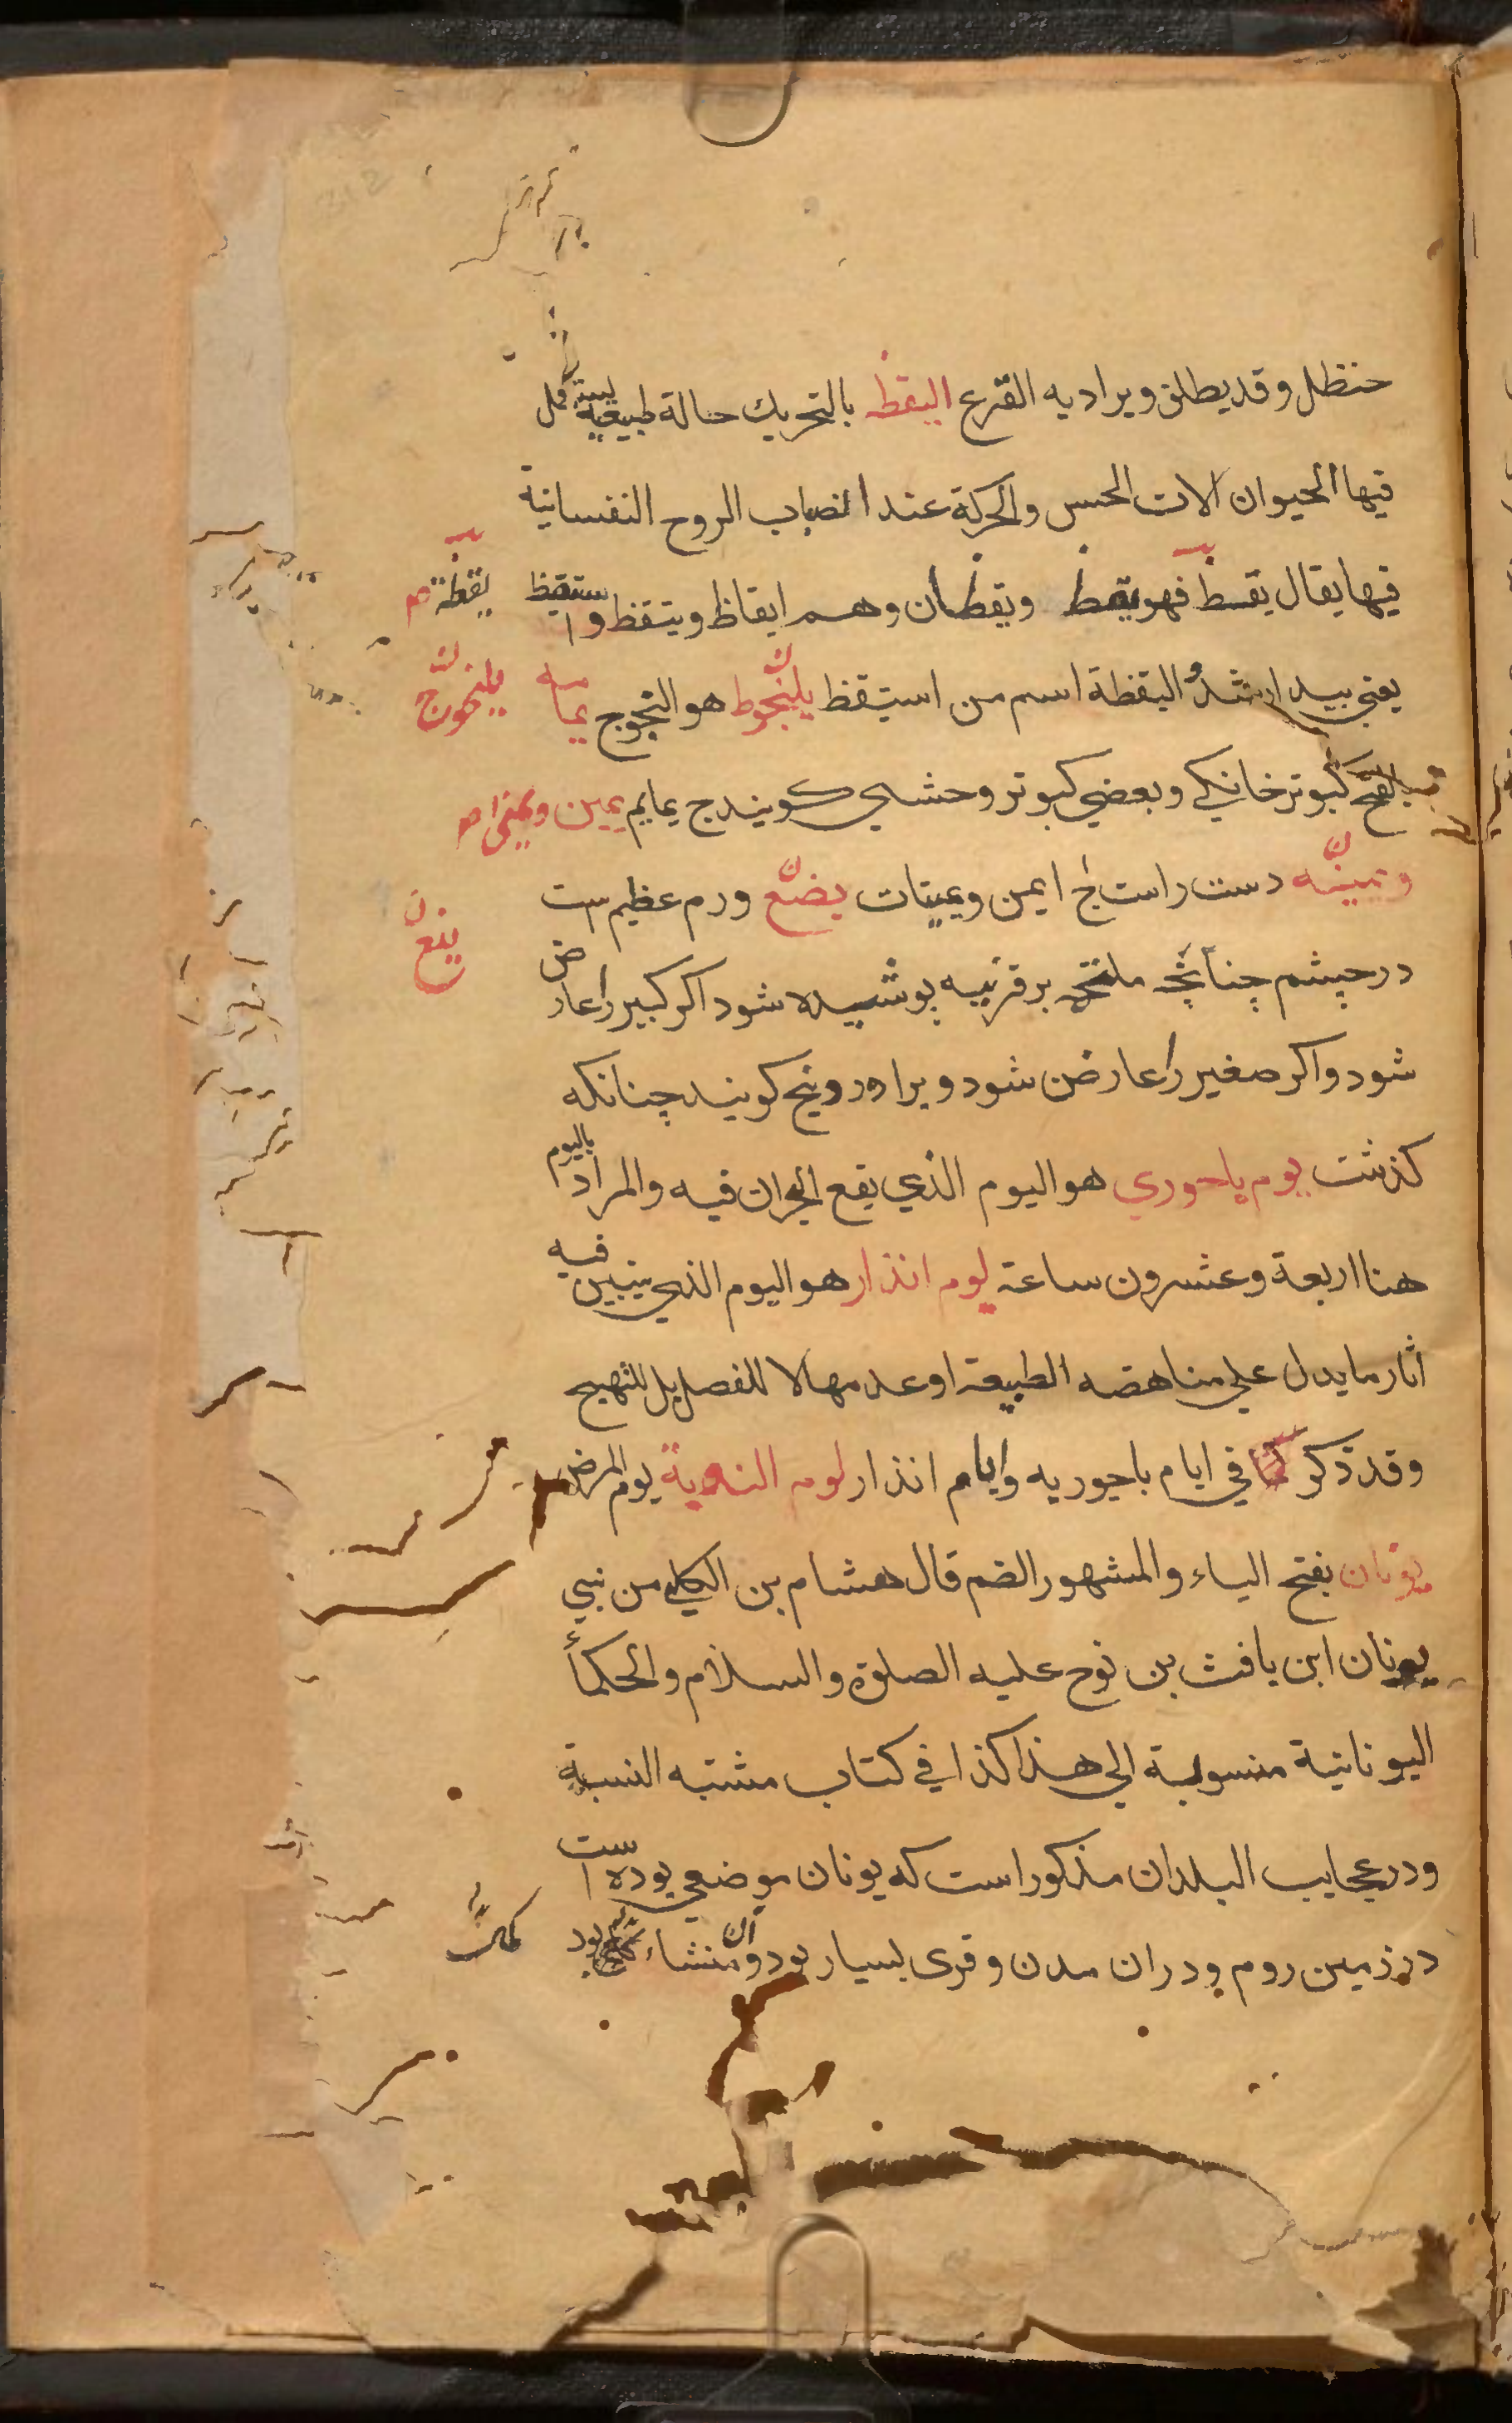 حنظل وقد يطلق ويراد به القرع اليقظ بالتحريك حالة طبيعية
فيها الحيوان الات الحس والحركة عند انصباب الروح النفسانية
فيها يقال يقظ فهو يقظ ويقظان وهم ايقاظ ويتقظ واستيقظ
يقظة
يعني بيدار شد اليقظة اسم من استيقظ يلنجوط هو النجوج يمامه
يلنجوج
بالفتح كبوتر خانكي وبعضي كبوتر وحشي كويند ج يمايم يمين ويمنى
ويمينه دست راست ج ايمن ويمينات يضع ورم عظيم ست
ينع
در چشم چنانچه ملتحمه بر قرنيه پوشيده شود اكر كبير را عارض
شود واكر صغير را عارض شود ويرا وردينج كويند چنانكه
كذشت يوم باحوري هو اليوم الذي يقع البحران فيه والمراد باليوم
هنا اربعة وعشرون ساعة يوم انذار هو اليوم الذي يتبين فيه
اثار ما يدل على مناهضه الطبيعة للفصل بل للتهيج
وقد ذكر في ايام باحوريه وايام انذار يوم يوم المرض
يونان بفتح الياء والمشهور الضم قال هشام بن الكلبي من بني
يونان ابن يافث بن نوح عليه الصلوة والسلام والحكماء
اليونانية منسوبة الي هذا كذا في كتاب مشتبه النسبة
ودر عجايب البلدان مذكور است كه يونان موضعي بوده است
در زمين روم ودران مدن وقرى بسيار بود وآن منشاء بود